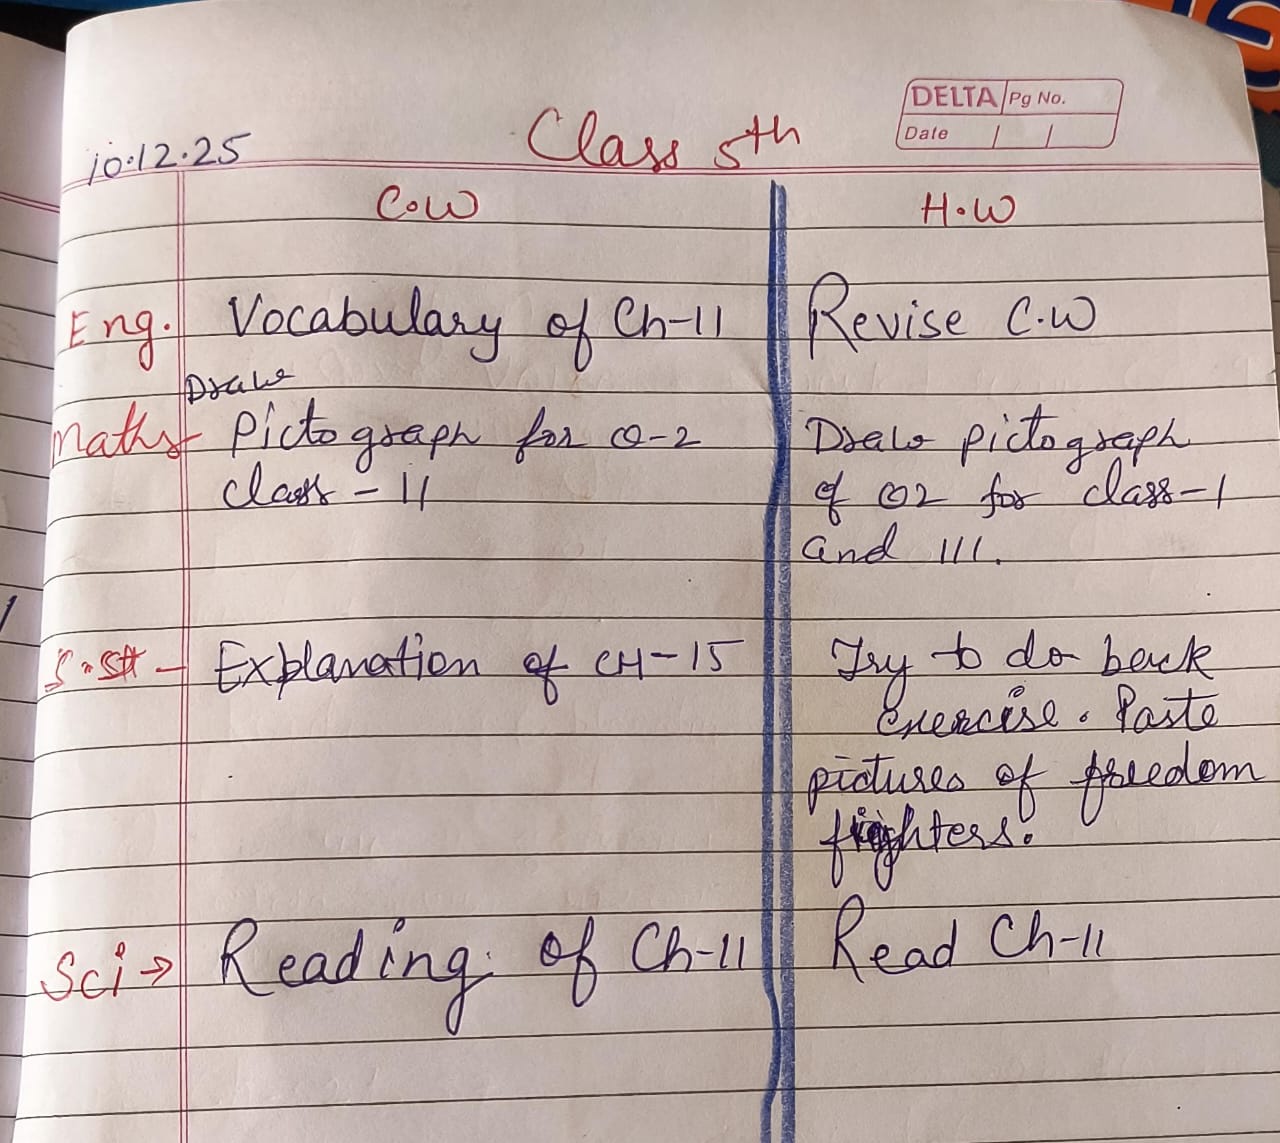 DELTA Pg No.
Date / /
10.12.25 Class 5th
C.W H.W
Eng. Vocabulary of Ch-11 Revise C.W
Draw
Maths Pictograph for Q-2 Draw pictograph
class - II of Q2 for class-I
and III.
S.St - Explanation of CH-15 Try to do back
exercise. Paste
pictures of freedom
fighters.
Sci → Reading of Ch-11 Read Ch-11